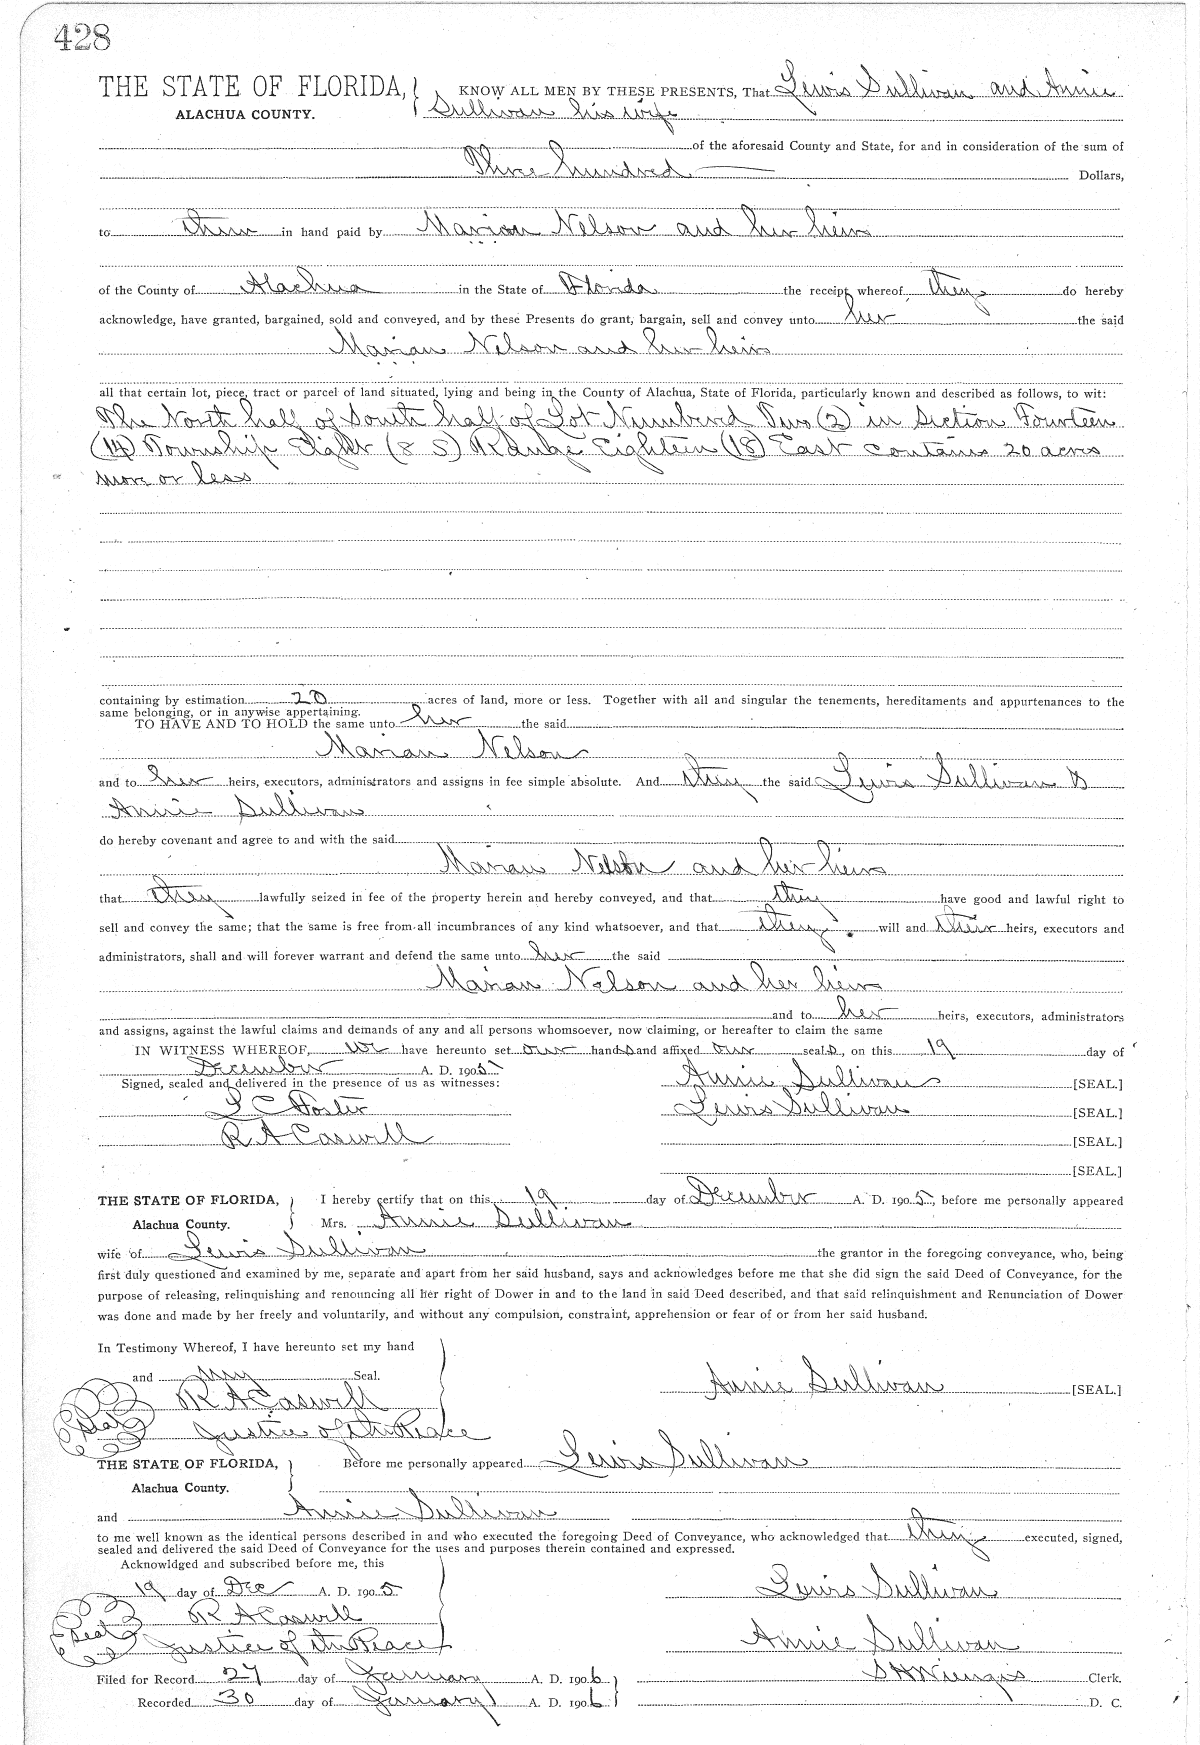 428
THE STATE OF FLORIDA, KNOW ALL MEN BY THESE PRESENTS, That Lewis Sullivan and Annie
ALACHUA COUNTY. Sullivan his wife
of the aforesaid County and State, for and in consideration of the sum of
Three hundred Dollars,
to them in hand paid by Marian Nelson and her heirs
of the County of Alachua in the State of Florida the receipt whereof they do hereby
acknowledge, have granted, bargained, sold and conveyed, and by these Presents do grant, bargain, sell and convey unto her the said
Marian Nelson and her heirs
all that certain lot, piece, tract or parcel of land situated, lying and being in the County of Alachua, State of Florida, particularly known and described as follows, to wit:
The North half of South half of Lot Numbered Two (2) in Section Fourteen
(14) Township Eight (8 S) Range Eighteen (18) East contains 20 acres
more or less
containing by estimation 20 acres of land, more or less. Together with all and singular the tenements, hereditaments and appurtenances to the
same belonging, or in anywise appertaining.
TO HAVE AND TO HOLD the same unto her the said
Marian Nelson
and to her heirs, executors, administrators and assigns in fee simple absolute. And they the said Lewis Sullivan &
Annie Sullivan
do hereby covenant and agree to and with the said
Marian Nelson and her heirs
that they lawfully seized in fee of the property herein and hereby conveyed, and that they have good and lawful right to
sell and convey the same; that the same is free from all incumbrances of any kind whatsoever, and that they will and their heirs, executors and
administrators, shall and will forever warrant and defend the same unto her the said
Marian Nelson and her heirs
and to her heirs, executors, administrators
and assigns, against the lawful claims and demands of any and all persons whomsoever, now claiming, or hereafter to claim the same
IN WITNESS WHEREOF, we have hereunto set our hands and affixed our seals, on this 19 day of
December A. D. 1905
Signed, sealed and delivered in the presence of us as witnesses: Annie Sullivan [SEAL.]
L C Foster Lewis Sullivan [SEAL.]
R A Caswell [SEAL.]
[SEAL.]
THE STATE OF FLORIDA, I hereby certify that on this 19 day of December A. D. 1905, before me personally appeared
Alachua County. Mrs. Annie Sullivan
wife of Lewis Sullivan the grantor in the foregoing conveyance, who, being
first duly questioned and examined by me, separate and apart from her said husband, says and acknowledges before me that she did sign the said Deed of Conveyance, for the
purpose of releasing, relinquishing and renouncing all her right of Dower in and to the land in said Deed described, and that said relinquishment and Renunciation of Dower
was done and made by her freely and voluntarily, and without any compulsion, constraint, apprehension or fear of or from her said husband.
In Testimony Whereof, I have hereunto set my hand
and my Seal.
R A Caswell Annie Sullivan [SEAL.]
Seal Justice of the Peace
THE STATE OF FLORIDA, Before me personally appeared Lewis Sullivan
Alachua County.
and Annie Sullivan
to me well known as the identical persons described in and who executed the foregoing Deed of Conveyance, who acknowledged that they executed, signed,
sealed and delivered the said Deed of Conveyance for the uses and purposes therein contained and expressed.
Acknowldged and subscribed before me, this
19 day of Dec A. D. 1905 Lewis Sullivan
R A Caswell
Seal Justice of the Peace Annie Sullivan
Filed for Record 27 day of January A. D. 1906 S H Wienges Clerk.
Recorded 30 day of January A. D. 1906 D. C.